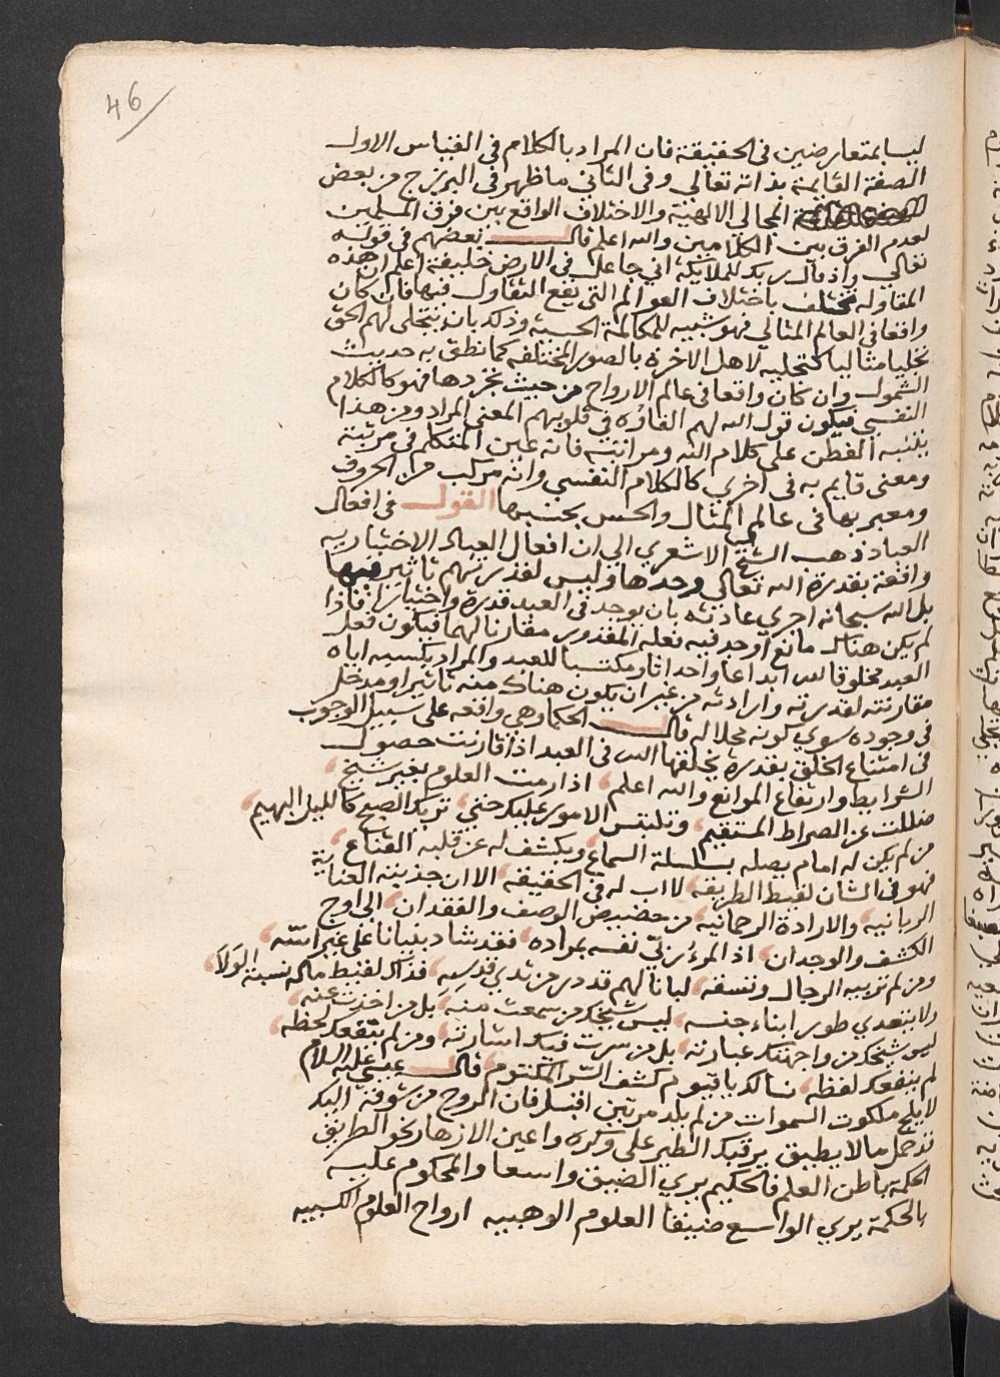 46
ليسا بمتعارضين فى الحقيقة فان المراد بالكلام فى القياس الاول
الصفة القايمة بذاته تعالي وفى الثاني ما ظهر فى البرزخ من بعض
المجالي الالهية والاختلاف الواقع بين فرق المسلمين
لعدم الفرق بين الكلامين والله اعلم قال بعضهم فى قوله
تعالي واذ قال ربك للملايكة اني جاعل فى الارض خليفة اعلم ان هذه
المقاوله تختلف باختلاف العوالم التى يقع التقاول فيها فان كان
واقعا فى العالم المثالي فهو شبيه للمكالمة الحسية وذلك بان يتجلى لهم الحق
تجليا مثاليا كتجليه لاهل الاخرة بالصور المختلفه كما نطق به حديث
التحول وان كان واقعا فى عالم الارواح من حيث تجردها فهو كالكلام
النفسي فيكون قول الله لهم القاؤه في قلوبهم المعنى المراد ومن هذا
يتنبه الفطن على كلام الله ومراتبه فانه عين المتكلم فى مرتبة
ومعنى قايم به فى اخري كالكلام النفسي وانه مركب من الحروف
ومعبر بها فى عالم المثال والحس بحسبها القول فى افعال
العباد ذهب الشيخ الاشعري الي ان افعال العباد الاختياريه
واقعة بقدرة الله تعالي وحدها وليس لقدرتهم تاثير فيها
بل الله سبحانه اجري عادته بان يوجد فى العبد قدرة واختيارا فاذا
لم يكن هناك مانع اوجد فيه فعله المقدور مقارنا لهما فيكون فعل
العبد مخلوقا لله ابداعا واحداثا ومكتسبا للعبد والمراد بكسبه اياه
مقارنته لقدرته وارادته من غير ان يكون هناك منه تاثير او مدخل
فى وجوده سوي كونه محلا له قال الحكما وهي واقعه على سبيل الوجوب
فى امتناع الخلق بقدرة يخلقها الله فى العبد اذا قارنت حصول
الشرايط وارتفاع الموانع والله اعلم اذا رمت العلوم بغير شيخ
ضللت عن الصراط المستقيم وتلتبس الامور عليك حتي تريك الصبح كالليل البهيم
من لم يكن له امام يصله بسلسلة السماع ويكشف له عن قلبه القناع
فهو فى الشان لقيط الطريقه لا اب له فى الحقيقه الا ان جذبته العناية
الربانيه والارادة الرحمانيه من حضيض الوصف والفقدان الى اوج
الكشف والوجدان اذ المرء ربى نفسه بمراده فقد شاد بنيانا على غير اسه
ومن لم تربيه الرجال وتسقه لبانا لهم قد در من ثدي قدسه فذاك لقيط ماله نسبة الولا
ولا يتعدي طور ابناء جنسه ليس شيخك من سمعت منه بل من اخذت عنه
ليس شيخك من واجهتك عبارته بل من سرت فيك اشارته ومن لم ينفعك لحظه
لم ينفعك لفظه نسالك يا قيوم كشف السر المكتوم قال عيسى عليه السلام
لا يلج ملكوت السموات من لم يلد مرتين اقبل فان الروح من شوقه اليك
تحمل ما لا يطيق يرقبك الطير على وكره واعين الازهار نحو الطريق
الحكمة باطن العلم فالحكيم يري الضيق واسعا والمحكوم عليه
بالحكمة يري الواسع ضيقا العلوم الوهبيه ارواح العلوم الكسبيه